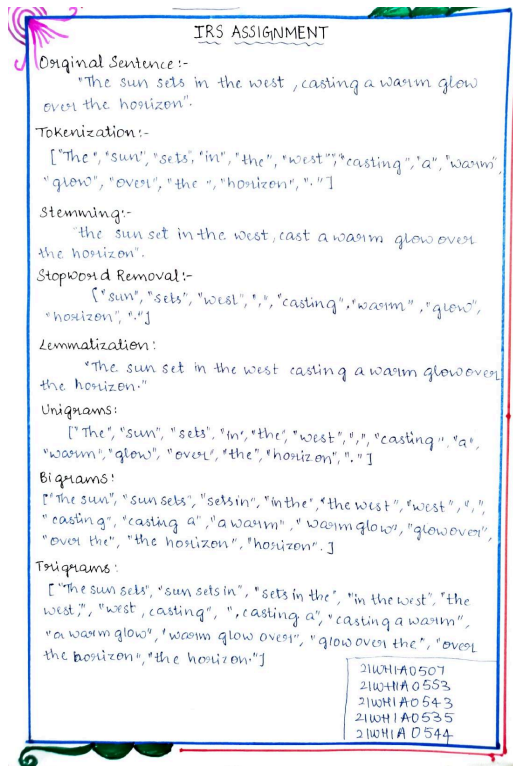 IRS ASSIGNMENT
Original Sentence:-
"The sun sets in the west, casting a warm glow
over the horizon".
Tokenization:-
["The", "sun", "sets", "in", "the", "west", "casting", "a", "warm",
"glow", "over", "the", "horizon", "."]
Stemming:-
"the sun set in the west, cast a warm glow over
the horizon".
Stopword Removal:-
["sun", "sets", "west", ",", "casting", "warm", "glow",
"horizon", "."]
Lemmatization:
"The sun set in the west casting a warm glow over
the horizon."
Unigrams:
["The", "sun", "sets", "in", "the", "west", ",", "casting", "a",
"warm", "glow", "over", "the", "horizon", "."]
Bigrams:
["The sun", "sun sets", "sets in", "in the", "the west", "west", ",",
"casting", "casting a", "a warm", "warm glow", "glow over",
"over the", "the horizon", "horizon".]
Trigrams:
["The sun sets", "sun sets in", "sets in the", "in the west", "the
west,", "west, casting", ", casting a", "casting a warm",
"a warm glow", "warm glow over", "glow over the", "over
the horizon", "the horizon."]
21WH1A0507
21WH1A0553
21WH1A0543
21WH1A0535
21WH1A0544